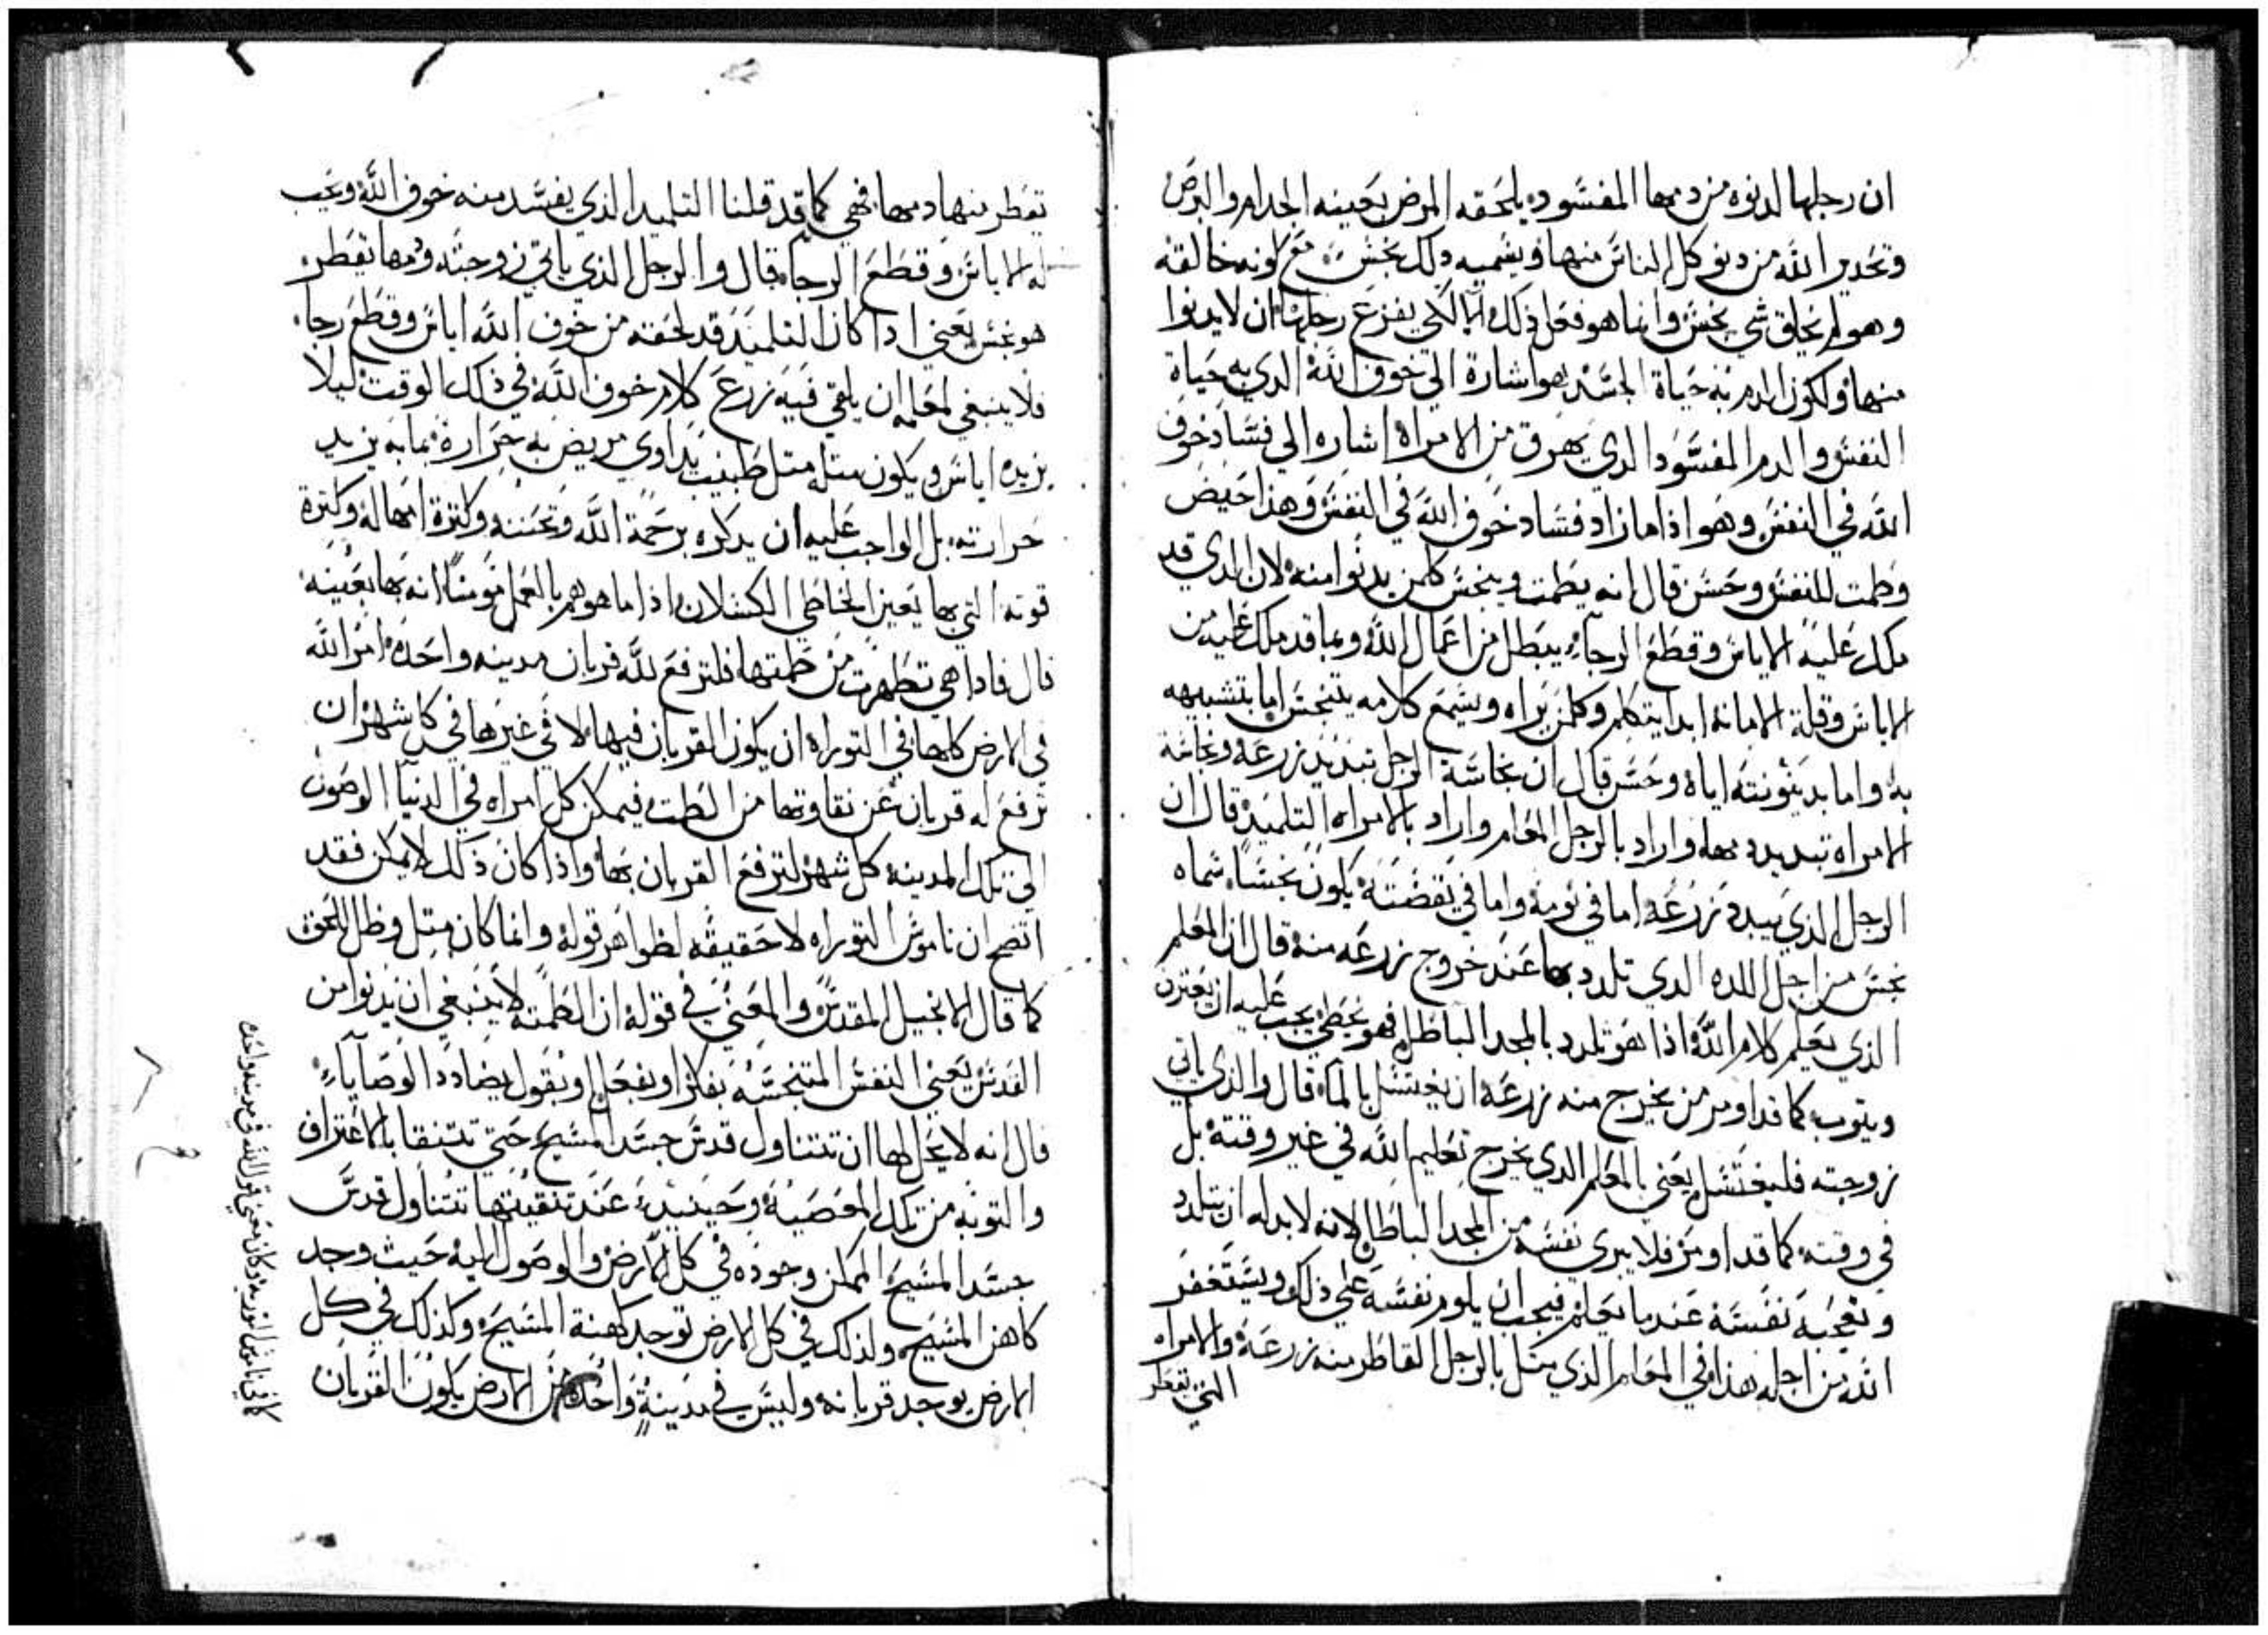 ان رجلها لدنوه من دمها المفسود يلحقه المرض بعينه الجدام والبرص
وتحدير الله من دنو كل الناس منها ويسميه دلك نجس مع كونه خالقه
وهو لم يخلق شي نجس وانما هو فعل ذلك لكي يفزع رجلها ان لا يدنوا
منها ولكون الدم به حياة الجسد هو اشارة الي خوف الله الدي به حياة
النفس والدم المفسود الدي يهرق من الامراه اشاره الي فساد خوف
الله في النفس وهو اذا ما زاد فساد خوف الله في النفس وهذا حيض
وطمت للنفس وحسن قال انه يطمت وينجس كلمن يدنوا منه لان الدي قد
ملك عليه الاياس وقطع الرجاء يبطل من اعمال الله وبما قد ملك عليه من
الاياس وقلة الامانه ابدا يتكلم وكلمن يراه ويسمع كلامه يتنجس اما بتشبيهه
به واما بدينونته اياه وحسن قال ان نجاسة الرجل تبديد زرعه ونجاسة
الامراه تبديد دمها واراد بالرجل المعلم واراد بالامراه التلميد قال ان
الرجل الذي يبدد زرعه اما في نومه واما في يقضته يكون نجسا سماه
نجس من اجل اللده الدي تلدد بها عند خروج زرعه منه قال ان المعلم
الذي يعلم كلام الله اذا هو تلدد بالمجد الباطل فهو يخطي يجب عليه ان يعترف
ويتوب كما قد اومر من يخرج منه زرعه ان يغتسل بالماء قال والذي ياتي
زوجته فليغتسل يعني بالمعلم الدي يخرج تعليم الله في غير وقته بل
في وقته كما قد اومر فلا يبري نفسه من المجد الباطل لانه لا بد له ان يتلدد
وتعجبه نفسه عند ما يعلم فيجب ان يلوم نفسه علي ذلك ويستغفر
الله من اجله هذا في المعلم الذي مثل بالرجل القاطر منه زرعه والامراه
التي تقطر
تقطر منها دمها فهي كما قد قلنا التلميد الذي يفسد منه خوف الله ويجب
له الاياس وقطع الرجاء قال والرجل الذي ياتي زوجته ودمها تقطر
هو نجس يعني ادا كان التلميد قد لحقه من خوف الله اياس وقطع رجاء
فلا ينبغي لمعلمه ان يلقي فيه زرع كلام خوف الله في ذلك الوقت ليلا
يزيده اياس ويكون مثله مثل طبيب يداوي مريض به حرارة بما به يزيد
حرارته بل الواجب عليه ان يدكره برحمة الله وتحننه وكثرة امهاله وكثرة
قوته التي بها يعين الخاطي الكسلان اذا ما هو هم بالعمل مومنا انه بها يعينه
قال فادا هي تطهرت من طمتها فلترفع لله قربان مدينه واحده امر الله
في الارض كلها في التوراه ان يكون القربان فيها لا في غيرها في كل شهر ان
ترفع له قربان عن نقاوتها من الطمت فيمكن كل امراه في الدنيا الوصول
الي تلك المدينه كل شهر لترفع القربان بها واذا كان ذلك لا يمكن فقد
اتضح ان ناموس التوراه لا حقيقه لظواهر قوله وانما كان مثل وظل للحق
كما قال الانجيل المقدس والمعني في قوله ان الطمته لا ينبغي ان يدنوا من
القدس يعني النفس المتنجسه بفكر او بفعل او بقول يضادد الوصاياء
قال انه لا يحل لها ان تتناول قدس جسد المسيح حتي تتنقا بالاعتراف
والتوبه من تلك المعصيه وحينيد عند تنقيتها تتناول قدس
جسد المسيح الممكن وجوده في كل الارض والوصول اليه حيث وجد
كاهن المسيح ولذلك في كل الارض توجد كهنة المسيح وكذلك في كل
الارض يوجد قربانه وليس في مدينة واحده من الارض يكون القربان
كما في ناموس التوريه وكان معني قول الله في مدينه واحده